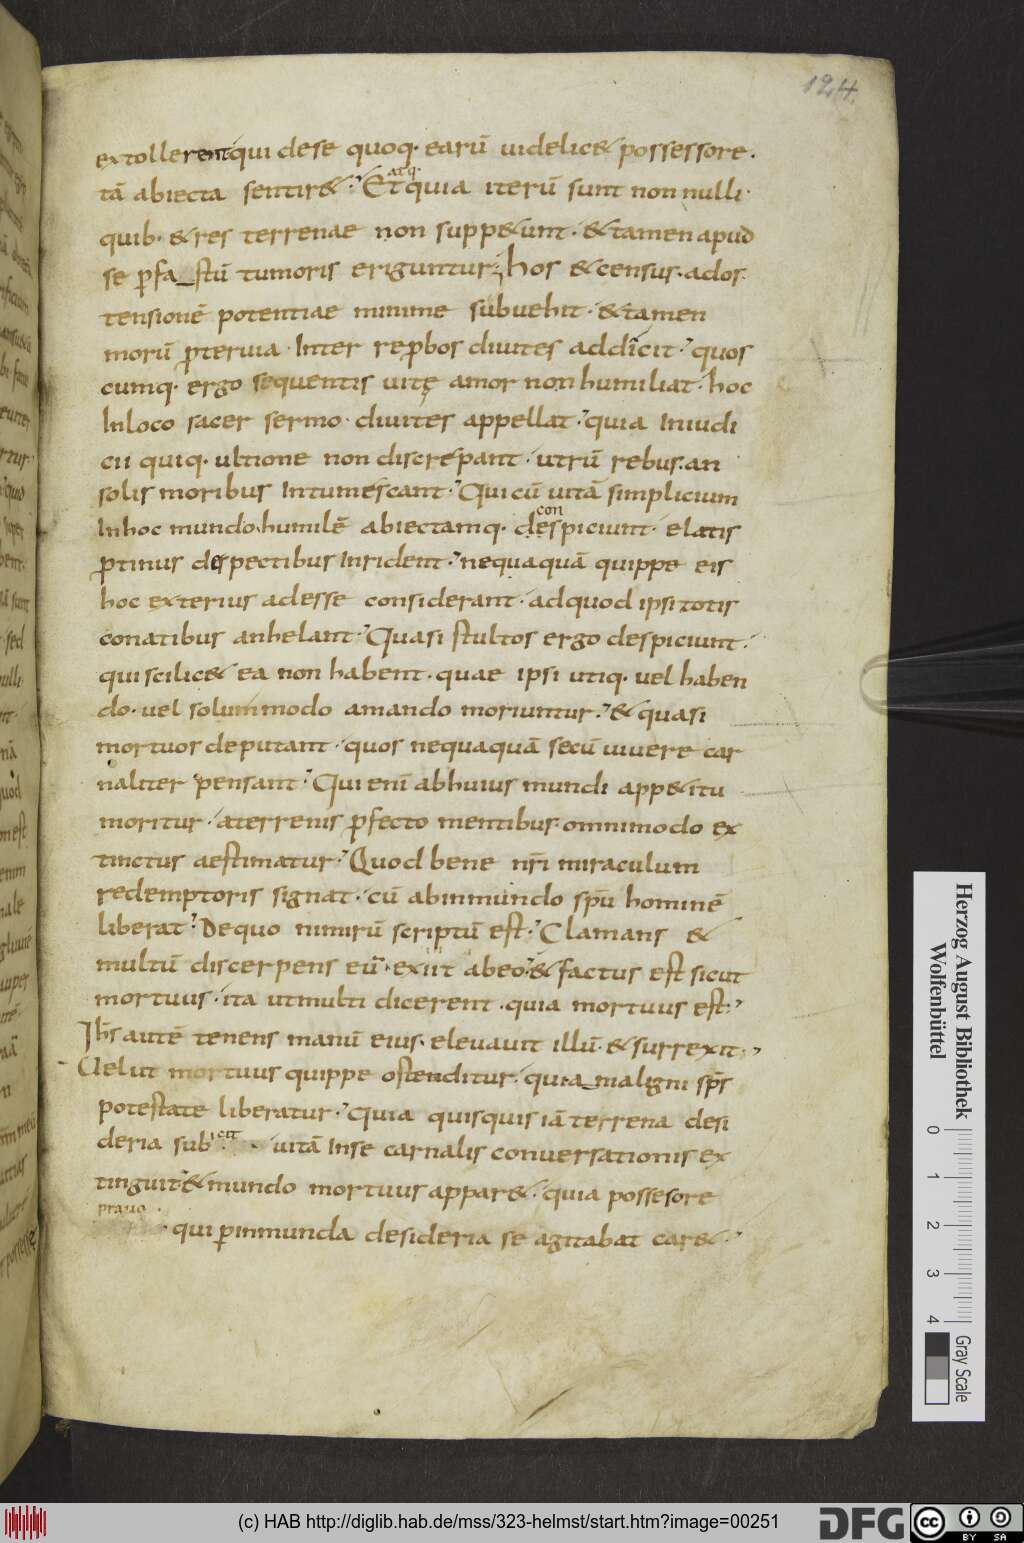 124
extollerentqui dese quoq· earū uidelic& possessore·
atq·
tā abiecta sentir&· Et quia iterū sunt non nulli·
quib· & res terrenae non supp&unt· & tamen apud
se ꝑfa_stū tumoris eriguntur· hos & census· ados·
tensionē potentiae minime subuehit· & tamen
morū ꝓteruia· Inter reꝓbos diuites addicit· quos
cumq· ergo sequentis uitę amor non humiliat· hoc
Inloco sacer sermo· diuites appellat· quia Iniudi
cii quiq· ultione non discrepant· utrū rebus· an
solis moribus Intumescant· Qui cū uitā simplicium
con
Inhoc mundo· humilē abiectamq· despiciunt· elatis
ꝓtinus despectibus Inrident· nequaquā quippe eis
hoc exterius adesse considerant· adquod ipsi totis
conatibus anhelant· Quasi stultos ergo despiciunt·
qui scilic& ea non habent· quae ipsi utiq· uel haben
do· uel solummodo amando moriuntur· & quasi
mortuos deputant· quos nequaquā secū uiuere car
naliter pensant· Qui enī abhuius mundi app&itu
moritur· aterrenis ꝓfecto mentibus· omnimodo ex
tinctus aestimatur· Quod bene nr̄i miraculum
redemptoris signat· cū abinmundo sp̄u hominē
liberat· De quo nimirū scriptū est· Clamans &
multū discerpens eū· exiit abeo· & factus est sicut
mortuus· ita utmulti dicerent· quia mortuus est·
Ih̄s autē tenens manū eius· eleuauit illū· & surrexit·
Uelut mortuus quippe ostenditur· quia_maligni sp̄s
potestate liberatur· Quia quisquis iā terrena desi
deria subicit uitā Inse carnalis conuersationis ex
tinguit· & mundo mortuus appar&· quia possesore
prauo
qui ꝑinmunda desideria se agitabat car&·
Herzog August Bibliothek
Wolfenbüttel
0 1 2 3 4
Gray Scale
(c) HAB http://diglib.hab.de/mss/323-helmst/start.htm?image=00251
DFG
cc BY SA